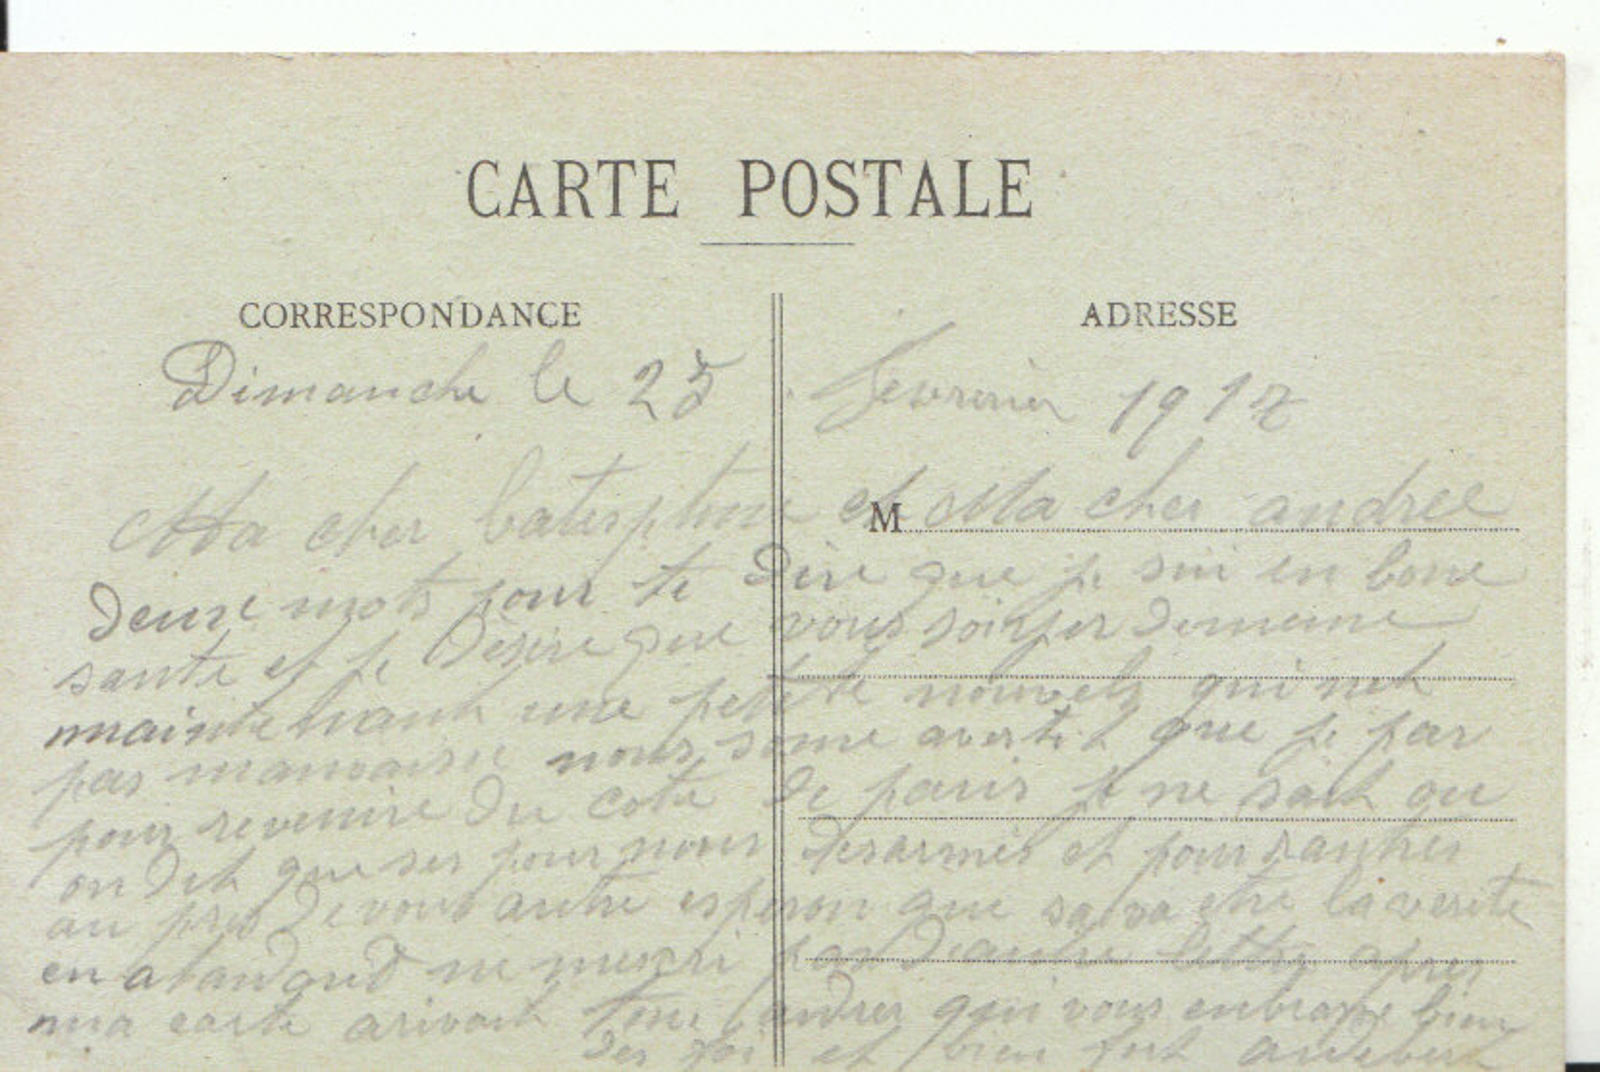 CARTE POSTALE
CORRESPONDANCE
ADRESSE
Dimanche le 25 fevrerier 1917
Ma cher et Ma cher andree
M
deuse mots pour te dire que je sui en bone
sante et je desire que vous soiyer de meme
maintenant une petite nouvels qui net
pas mauvaise nous some avertit que je par
pour revenire du cote de paris je ne sait ou
on dit que ses pour nous desarmer et pour rantrer
au pres de vous autre esperon que sa va etre la verite
en atandand ne mecri pas dautre lettre apres
ma carte arivait ton andres qui vous enbrasse bien
des foi et bien fort